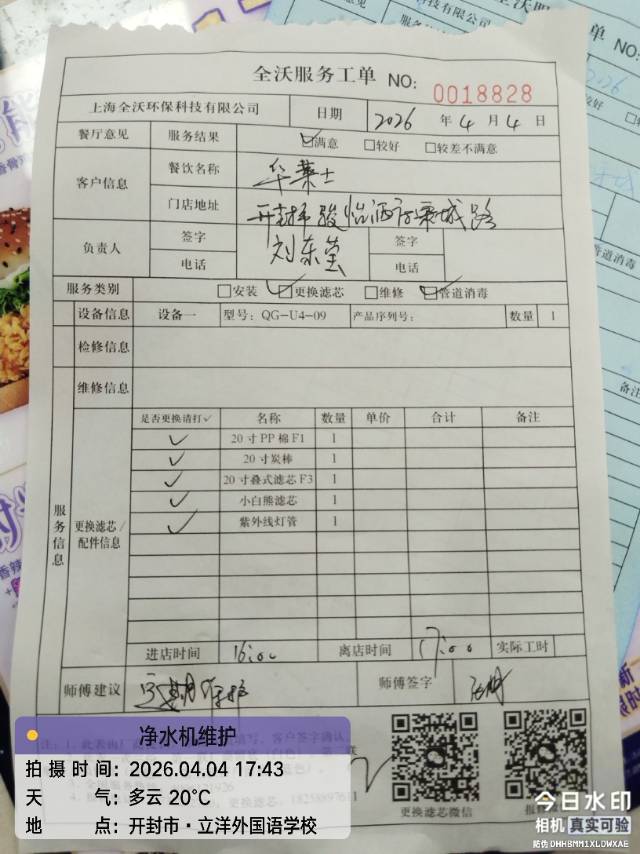 全沃服务工单 NO: 0018828
上海全沃环保科技有限公司 日期 2026 年 4 月 4 日
餐厅意见 服务结果 满意 较好 较差不满意
客户信息 餐饮名称 华莱士
门店地址 开封 骏怡酒店 城路
负责人 签字 刘东莹 签字
电话 电话
服务类别 安装 更换滤芯 维修 管道消毒
设备信息 设备一 型号: QG-U4-09 产品序列号: 数量 1
检修信息
维修信息
服务信息
更换滤芯/配件信息
是否更换请打✓ 名称 数量 单价 合计 备注
✓ 20寸PP棉F1 1
✓ 20寸炭棒 1
✓ 20寸叠式滤芯F3 1
✓ 小白熊滤芯 1
✓ 紫外线灯管 1
进店时间 16:00 离店时间 17:00 实际工时
师傅建议 定期维护 师傅签字
更换滤芯微信
净水机维护
拍摄时间: 2026.04.04 17:43
天气: 多云 20℃
地点: 开封市·立洋外国语学校
今日水印
相机 真实可验
防伪 DHHBMM1XLDWXAE